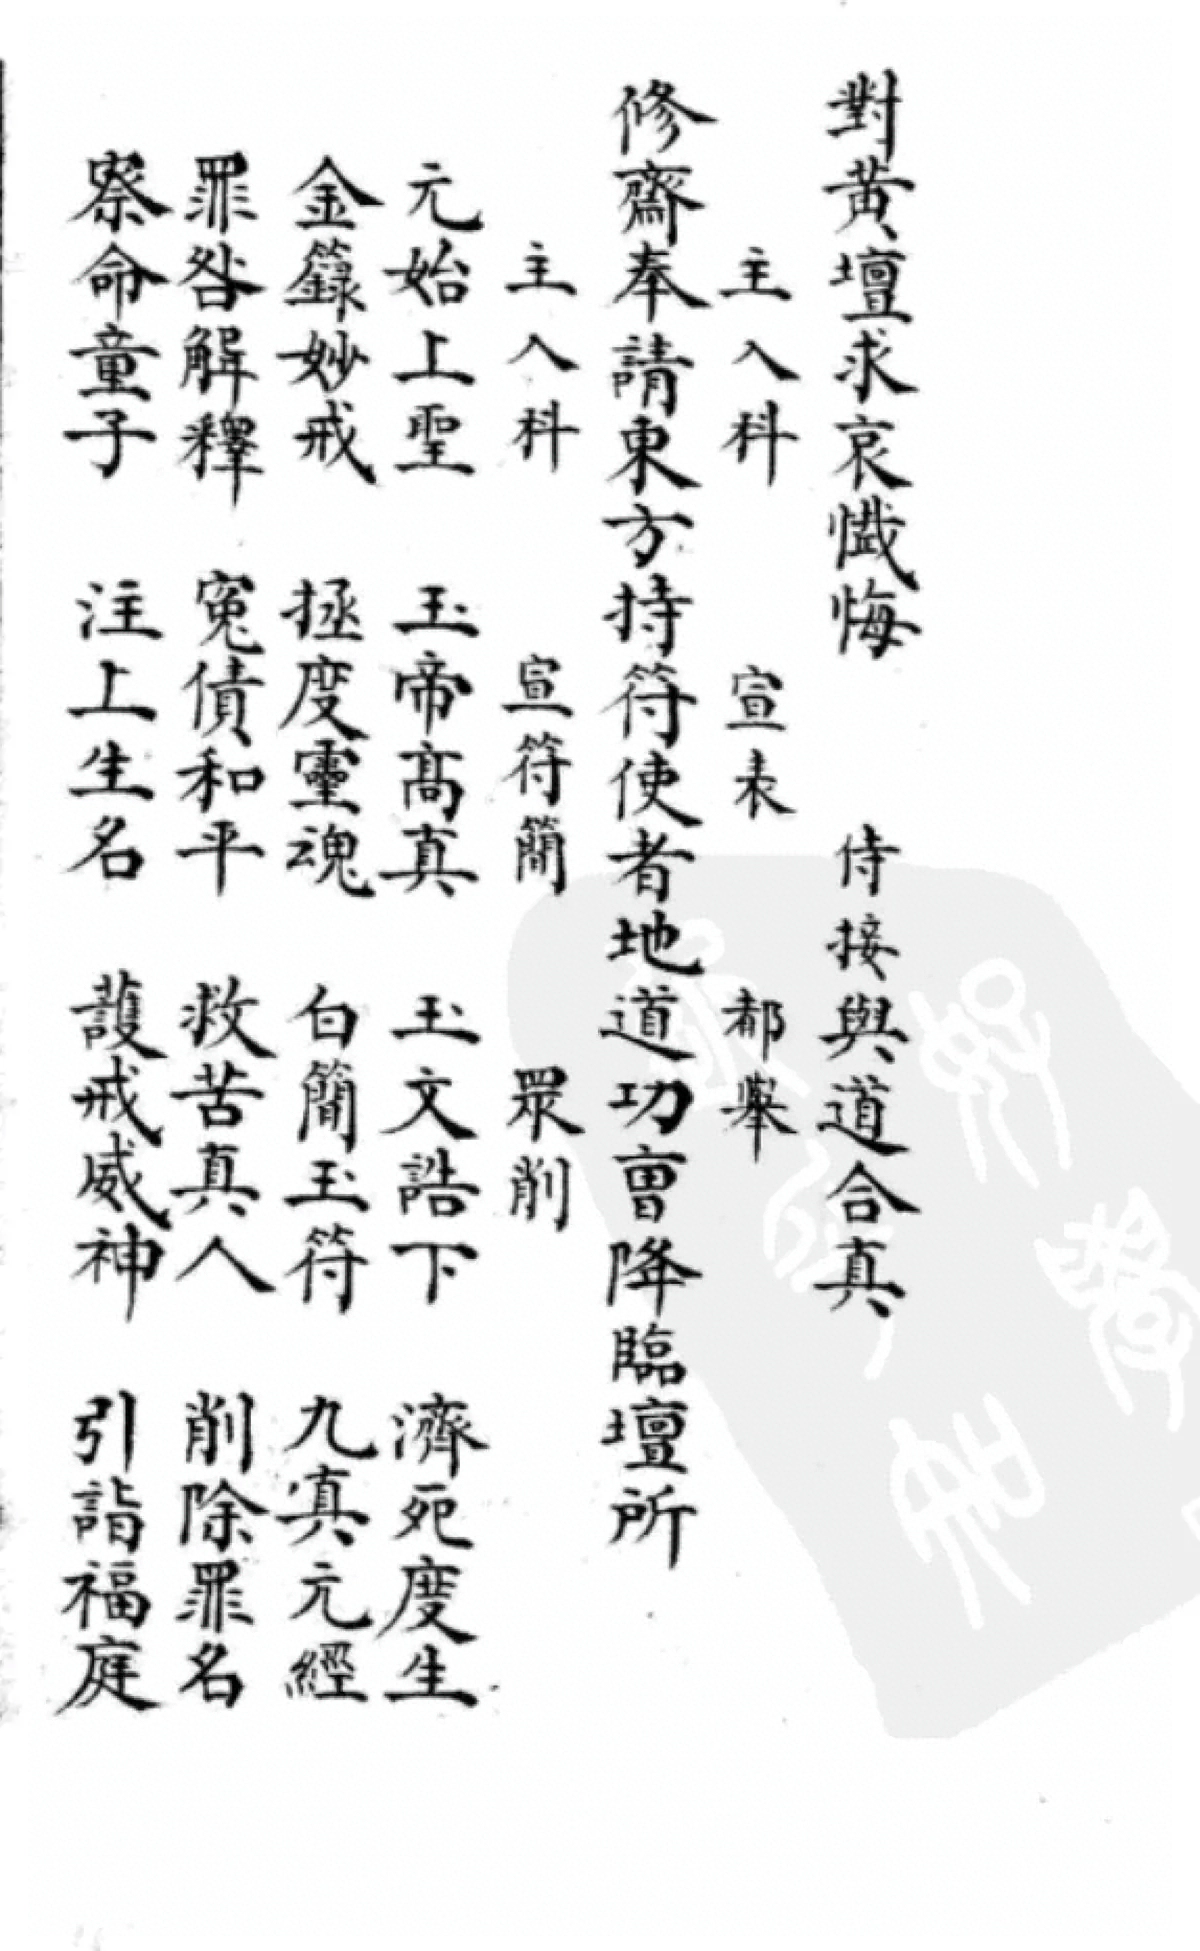 對黃壇求哀懺悔　侍接與道合真
主入科　宣表　都舉
修齋奉請東方持符使者地道功曹降臨壇所
主入科　宣符簡　眾削
元始上聖　玉帝高真　玉文誥下　濟死度生
金籙妙戒　拯度靈魂　白簡玉符　九真元經
罪咎解釋　寃債和平　救苦真人　削除罪名
察命童子　注上生名　護戒威神　引詣福庭